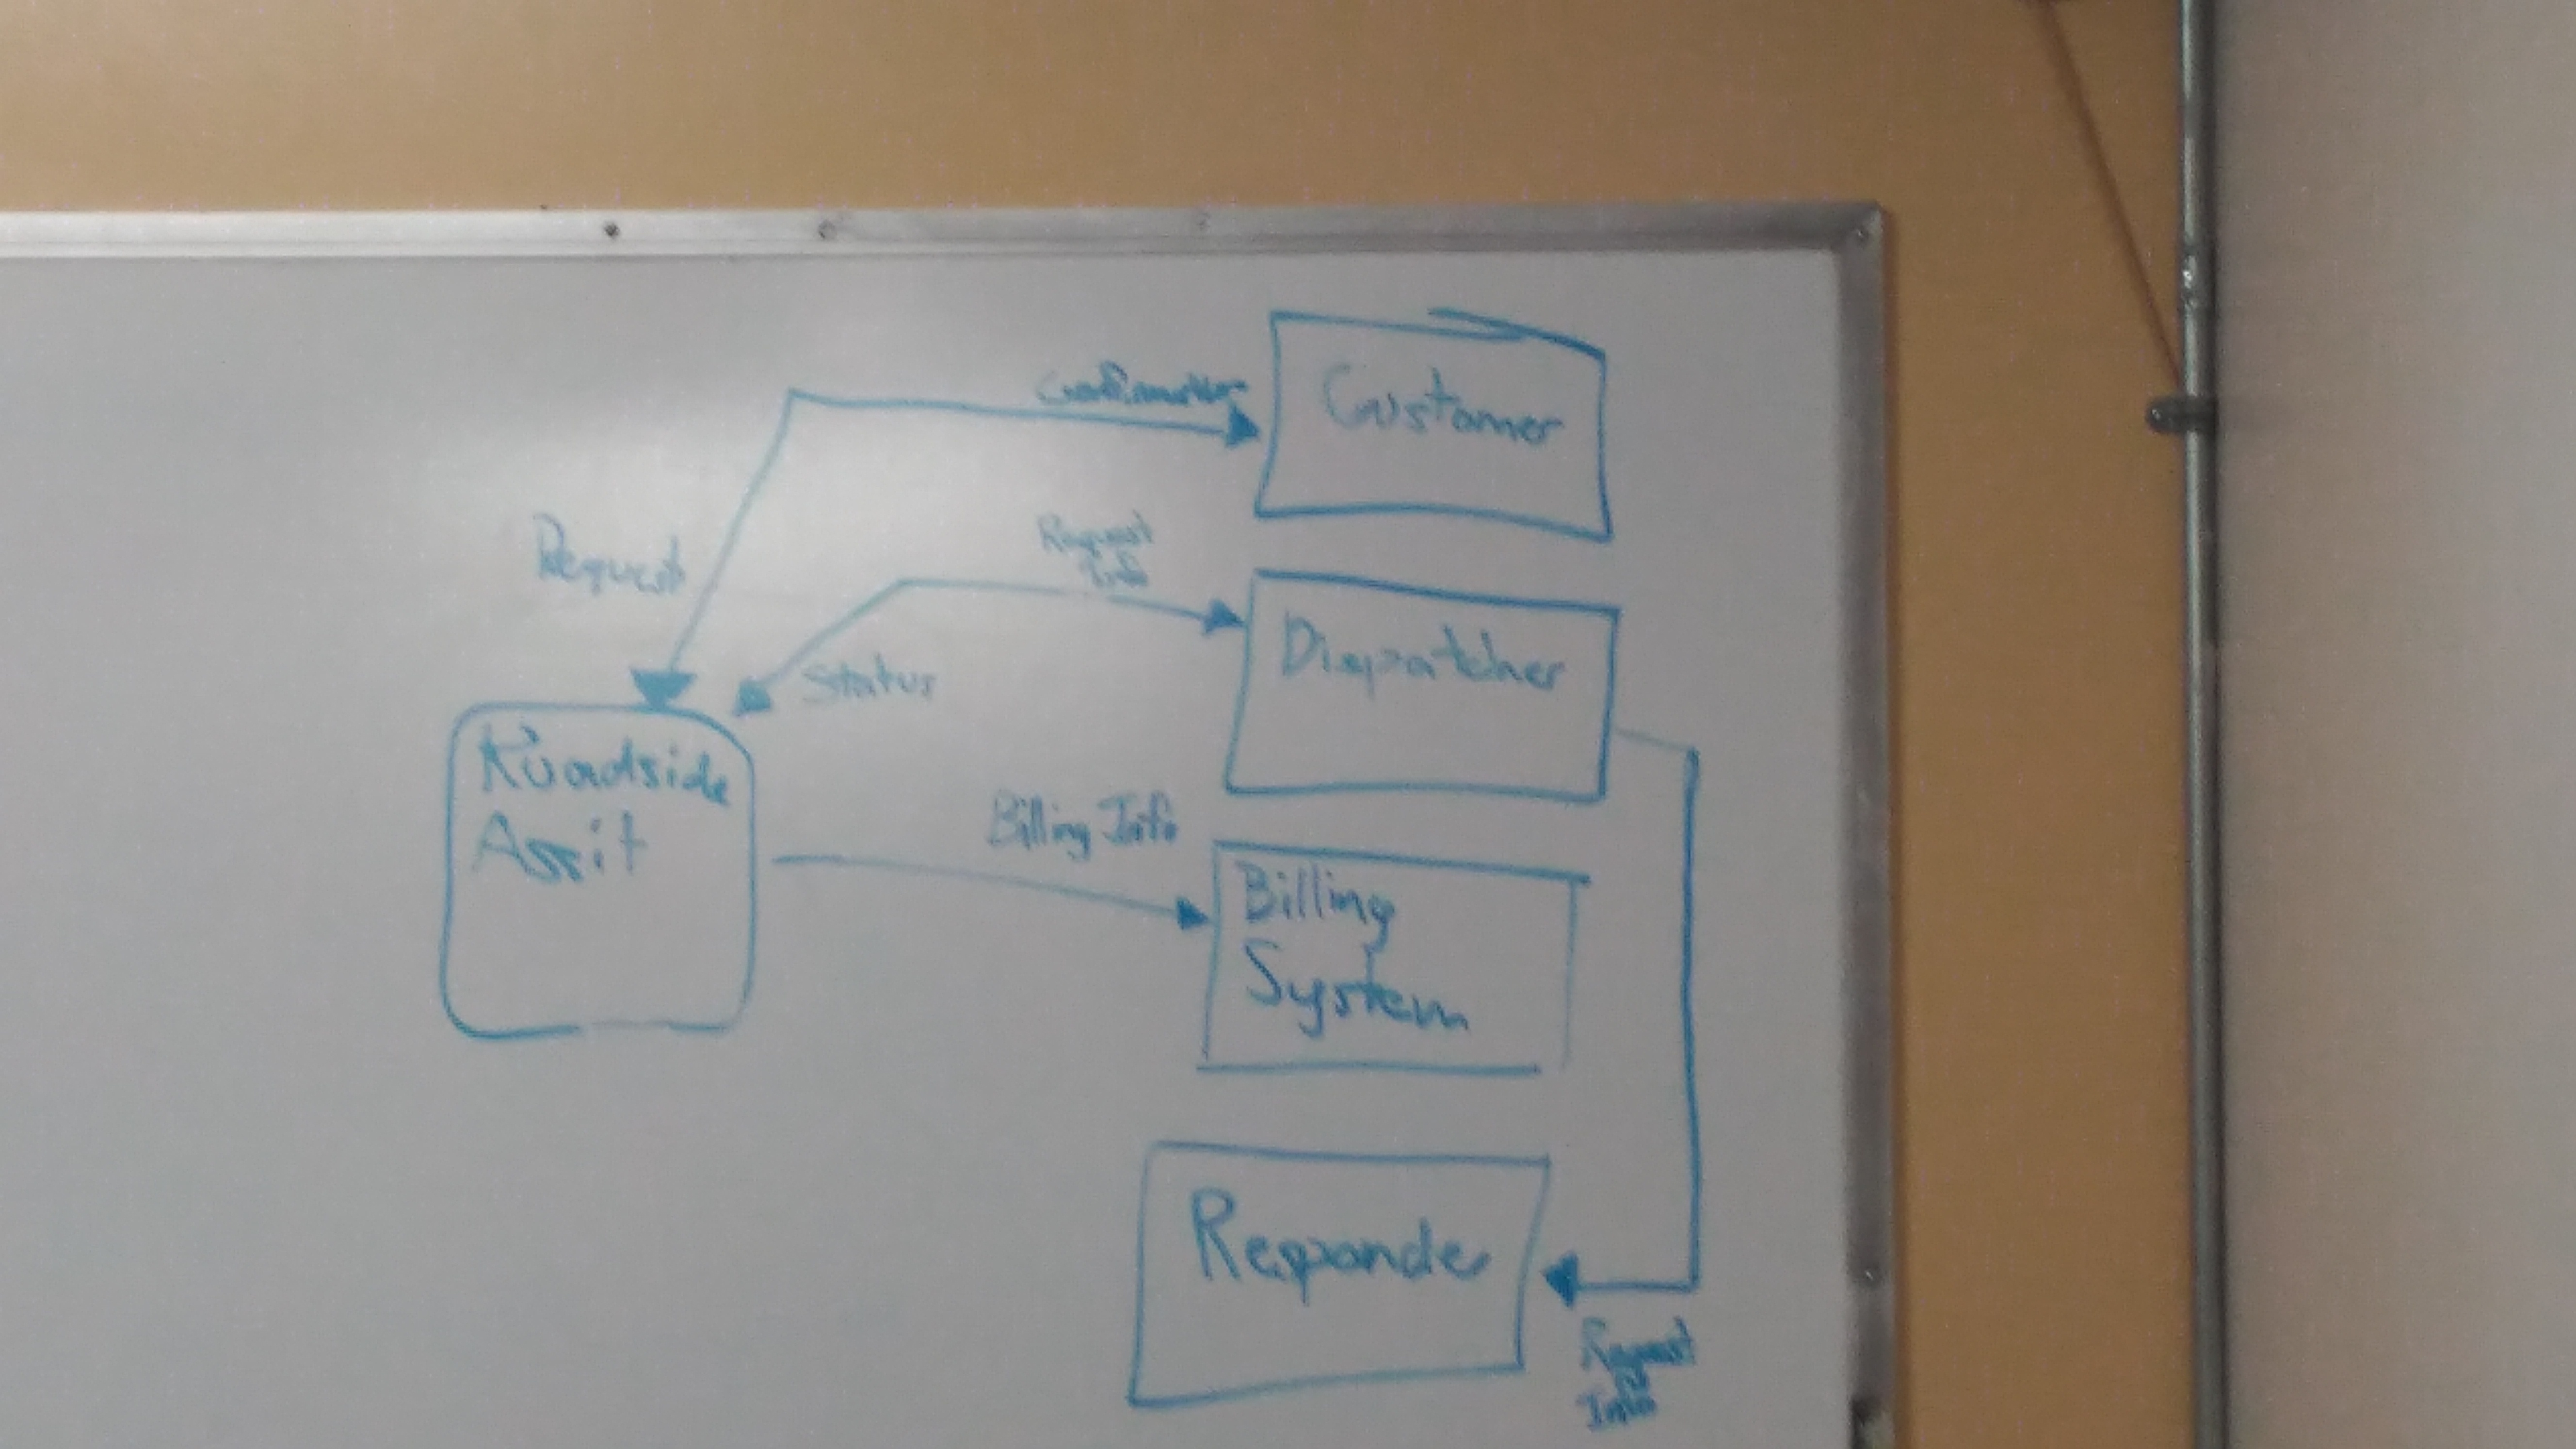 Confirmation
Customer
Request
Request
Info
Dispatcher
Status
Roadside
Assit
Billing Info
Billing
System
Responder
Request
Info